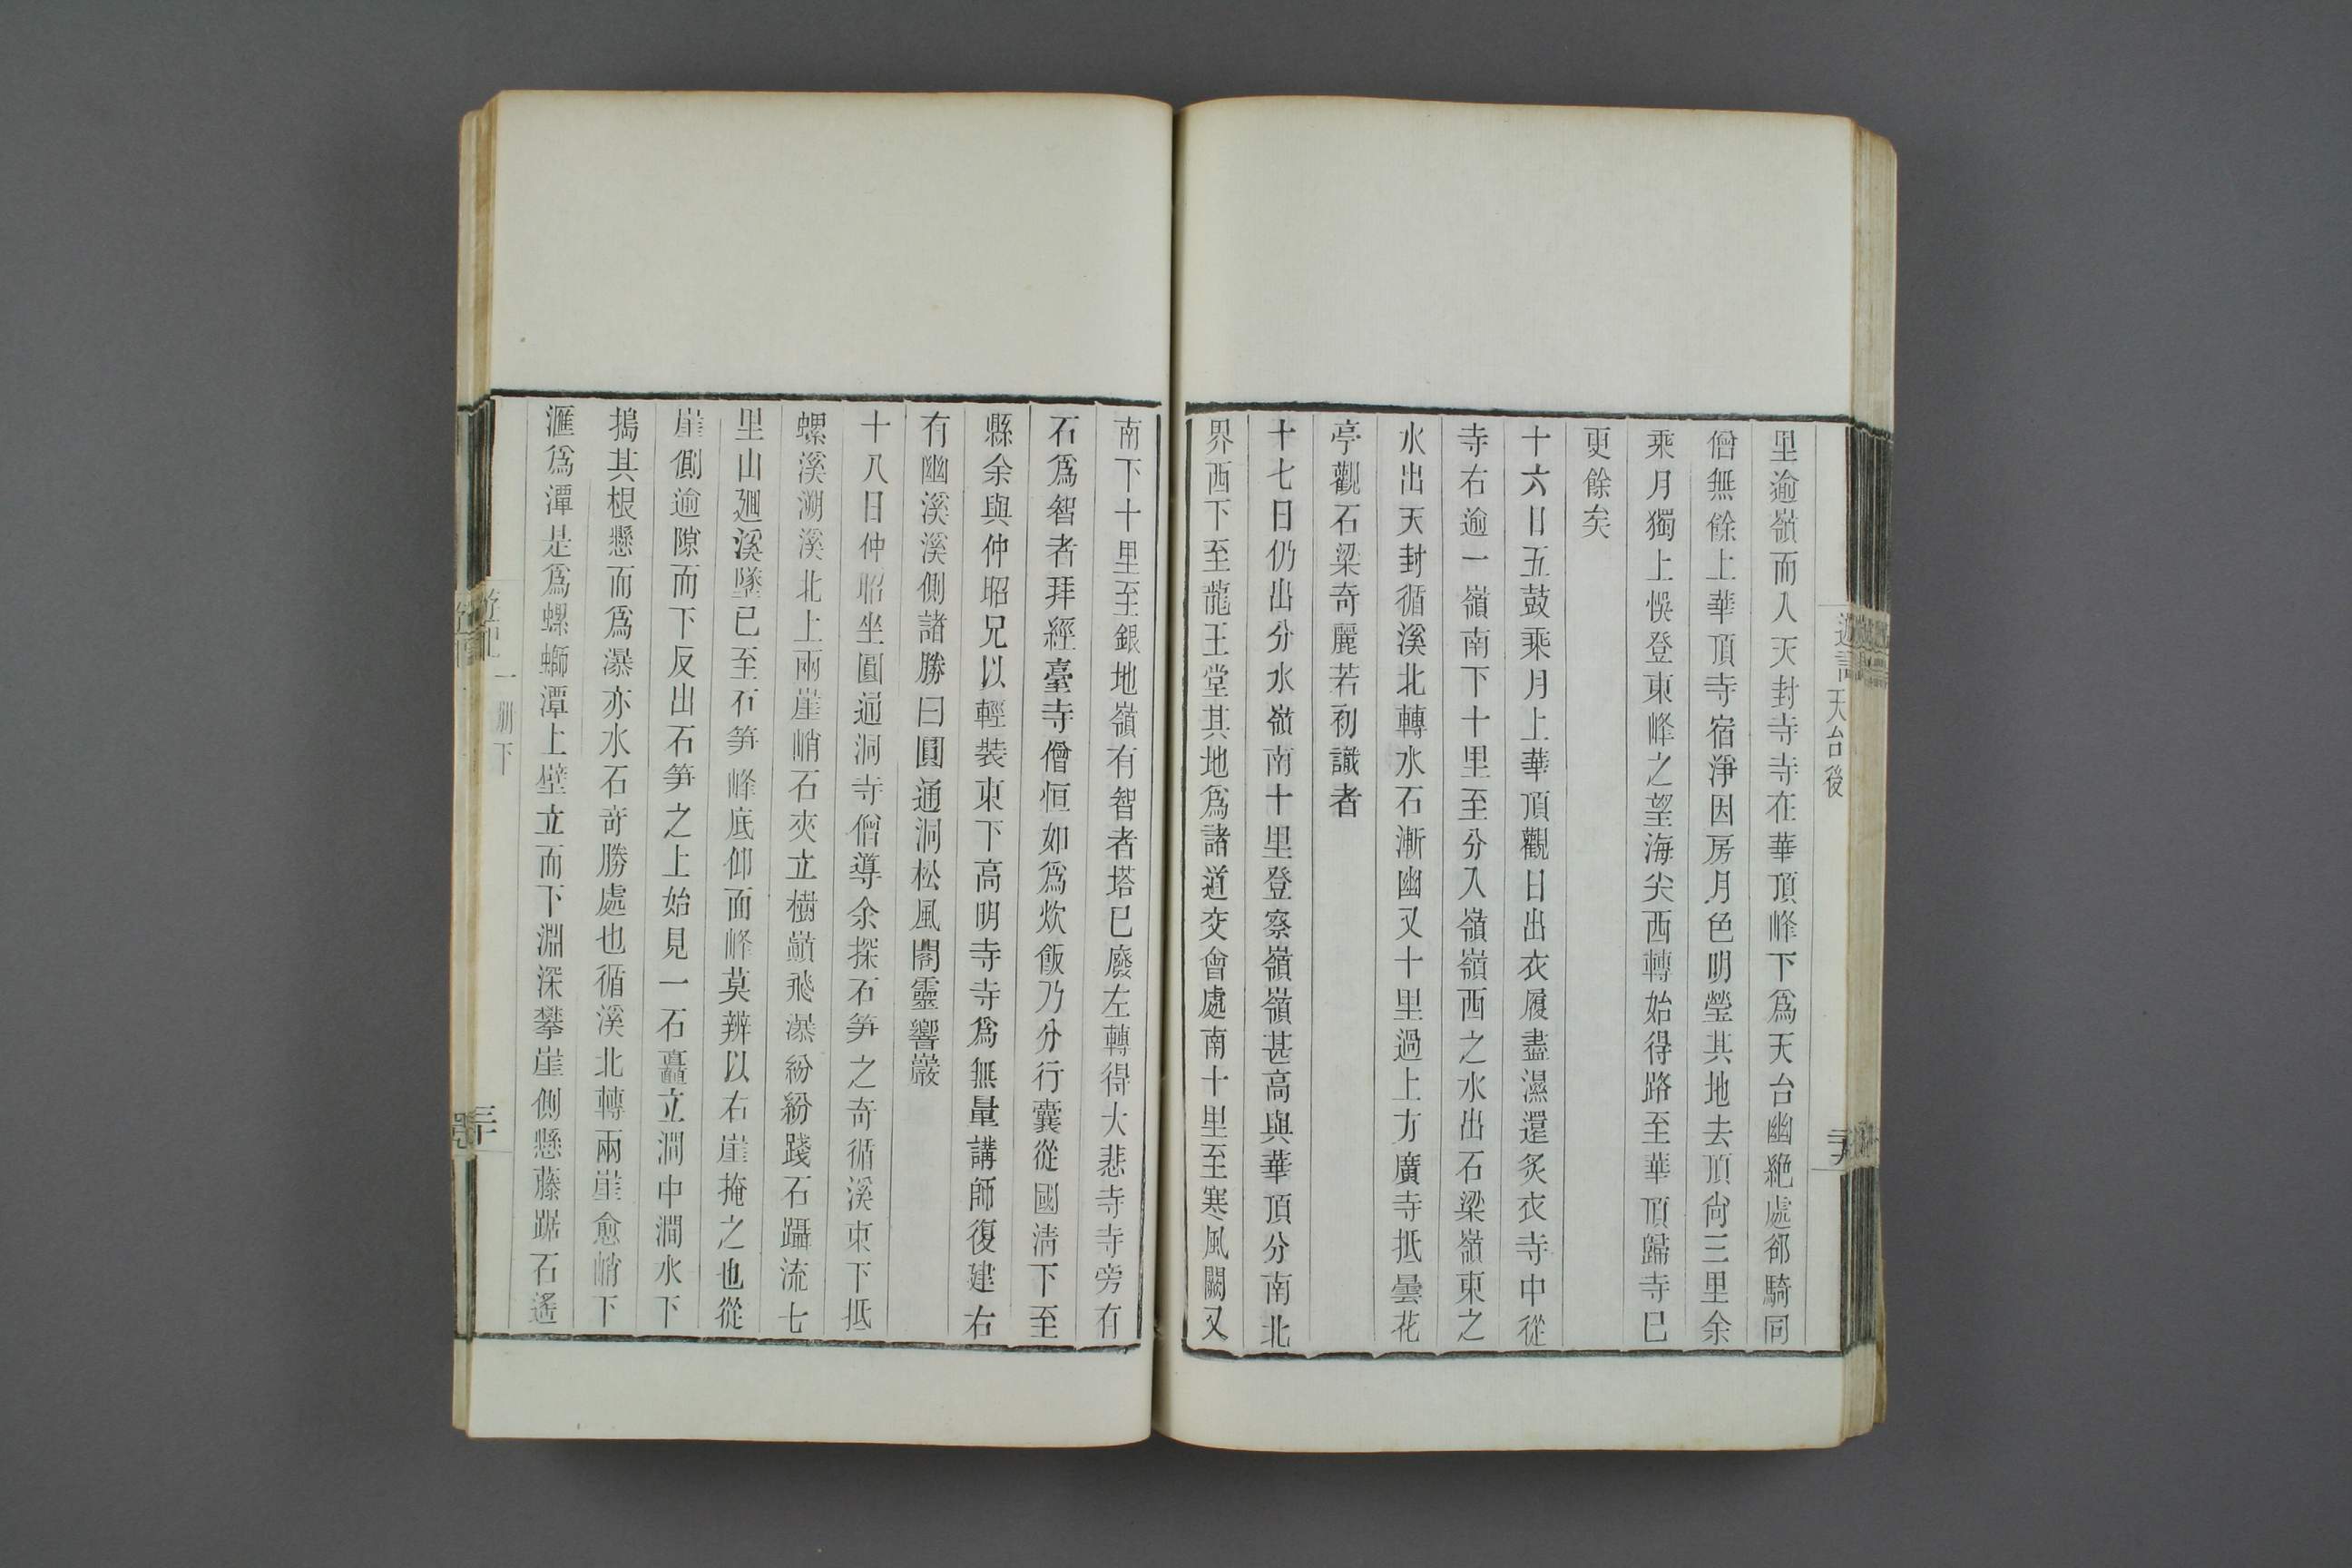 里逾嶺而入天封寺寺在華頂峰下爲天台幽絶處郤騎同
僧無餘上華頂寺宿淨因房月色明瑩其地去頂尙三里余
乘月獨上悞登東峰之望海尖西轉始得路至華頂歸寺已
更餘矣
十六日五鼓乘月上華頂觀日出衣履盡濕還炙衣寺中從
寺右逾一嶺南下十里至分入嶺嶺西之水出石梁嶺東之
水出天封循溪北轉水石漸幽又十里過上方廣寺抵曇花
亭觀石梁奇麗若初識者
十七日仍出分水嶺南十里登察嶺嶺甚高與華頂分南北
界西下至龍王堂其地爲諸道交會處南十里至寒風闕又
天台後
南下十里至銀地嶺有智者塔已廢左轉得大悲寺寺旁有
石爲智者拜經臺寺僧恒如爲炊飯乃分行囊從國清下至
縣余與仲昭兄以輕裝東下高明寺寺爲無量講師復建右
有幽溪溪側諸勝曰圓通洞松風閣靈響巖
十八日仲昭坐圓通洞寺僧導余探石笋之奇循溪東下抵
螺溪溯溪北上兩崖峭石夾立樹巔飛瀑紛紛踐石躡流七
里山廻溪墜已至石笋峰底仰面峰莫辨以右崖掩之也從
崖側逾隙而下反出石笋之上始見一石矗立澗中澗水下
搗其根懸而爲瀑亦水石奇勝處也循溪北轉兩崖愈峭下
滙爲潭是爲螺螄潭上壁立而下淵深攀崖側懸藤踞石遙
一册下
三十